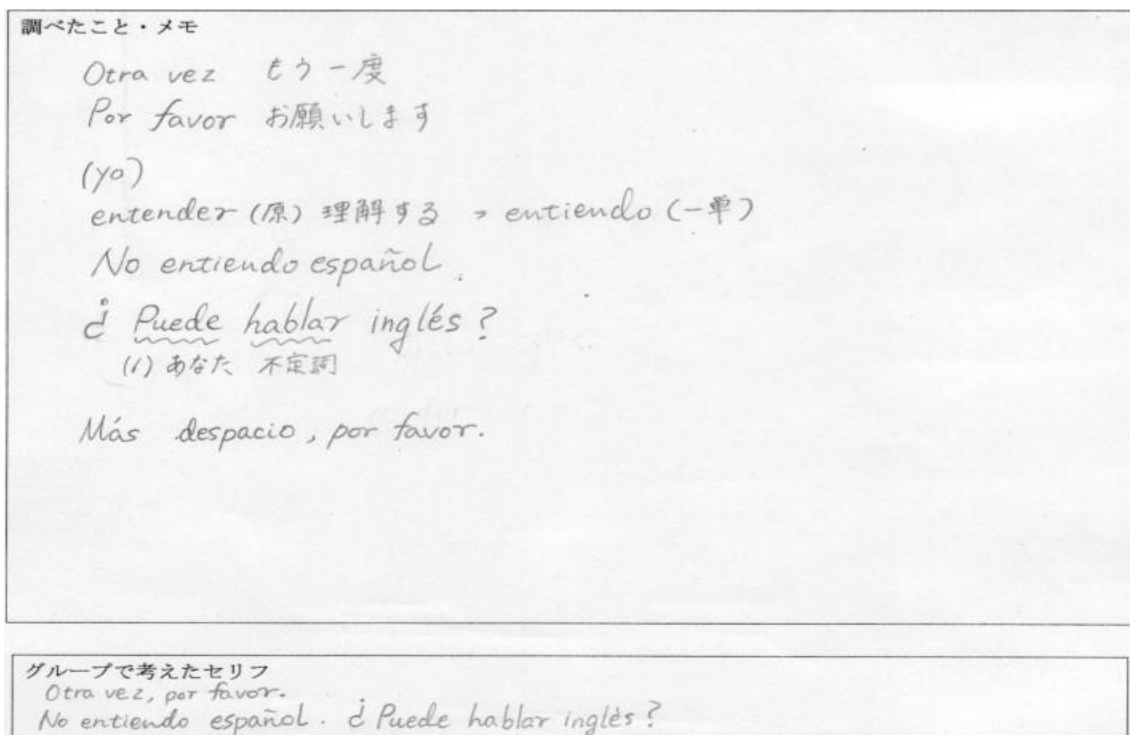 調べたこと・メモ
Otra vez もう一度
Por favor お願いします
(yo)
entender (原) 理解する → entiendo (一単)
No entiendo español.
¿Puede hablar inglés?
(1) あなた 不定詞
Más despacio, por favor.
グループで考えたセリフ
Otra vez, por favor.
No entiendo español. ¿Puede hablar inglés?